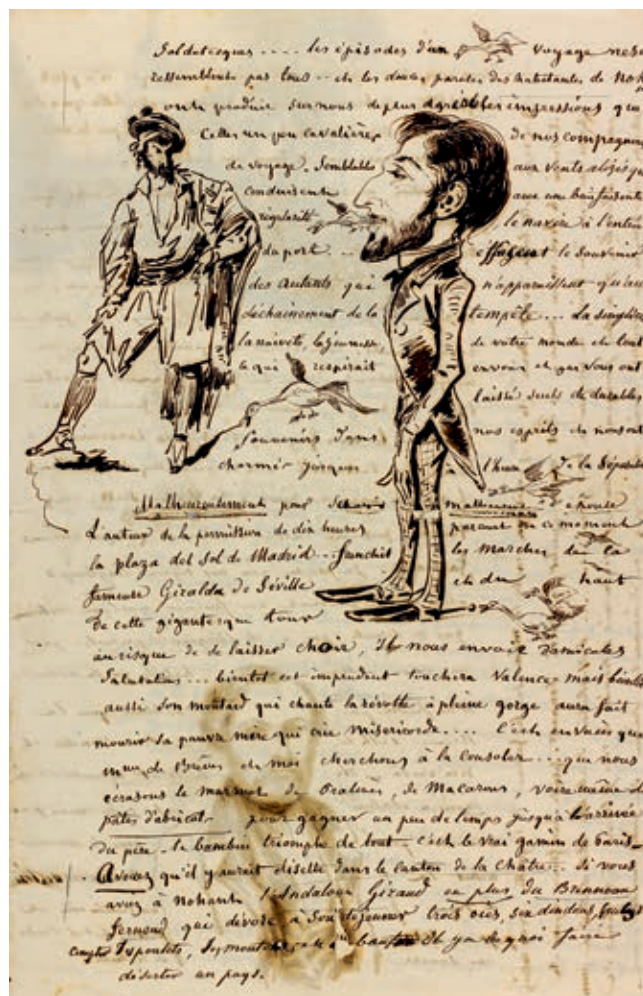 Soldatesques .... les épisodes d'un voyage ne se
ressemblent pas tous .. et les douces paroles des habitantes de Noh
ont produit sur nous de plus agréables impressions que
Celles un peu cavalières de nos compagnons
de voyage. Semblables aux vents alizés qui
conduisent avec une bienfaisante
régularité le navire à l'entrée
du port ... effaçent le Souvenir
des autants qui n'apparaissent qu'au
déchainement de la tempête ... La simplicité
la naïveté, la jeunesse, de votre monde et tout
ce qui respirait en vous et par vous ont
laissé seuls de durables
Souvenirs dans nos esprits et nous ont
charmés jusques l'heure de la Séparation
Malheureusement pour
L'auteur de la permission de dix heures parcourt en ce moment
la plaza del Sol de Madrid .. franchit les marches de la
fameuse Giralda de Séville et du haut
de cette gigantesque tour
au risque de se laisser choir, Il nous envoie d'amicales
Salutations ... bientot cet imprudent touchera Valence - mais bientôt
aussi Son moutard qui chante la révolte à pleine gorge aura fait
mourir sa pauvre mère qui crie miséricorde .... C'est en vain que
et moi cherchons à la consoler ... que nous
écrasons le marmot de de Macarons, voire même de
pâtes d'abricots pour gagner un peu de temps jusqu'à l'arrivée
du père - le bambin triomphe de tout - c'est le vrai gamin de Paris -
Avouez qu'il y aurait disette dans le canton de la Châtre .. Si vous
aviez à Nohant l'Andalou Giraud en plus du Bonneau
fernand qui dévore à Son déjeuner trois oies, six dindons,
poulets, moutons, Il y a de quoi faire
déserter un pays.